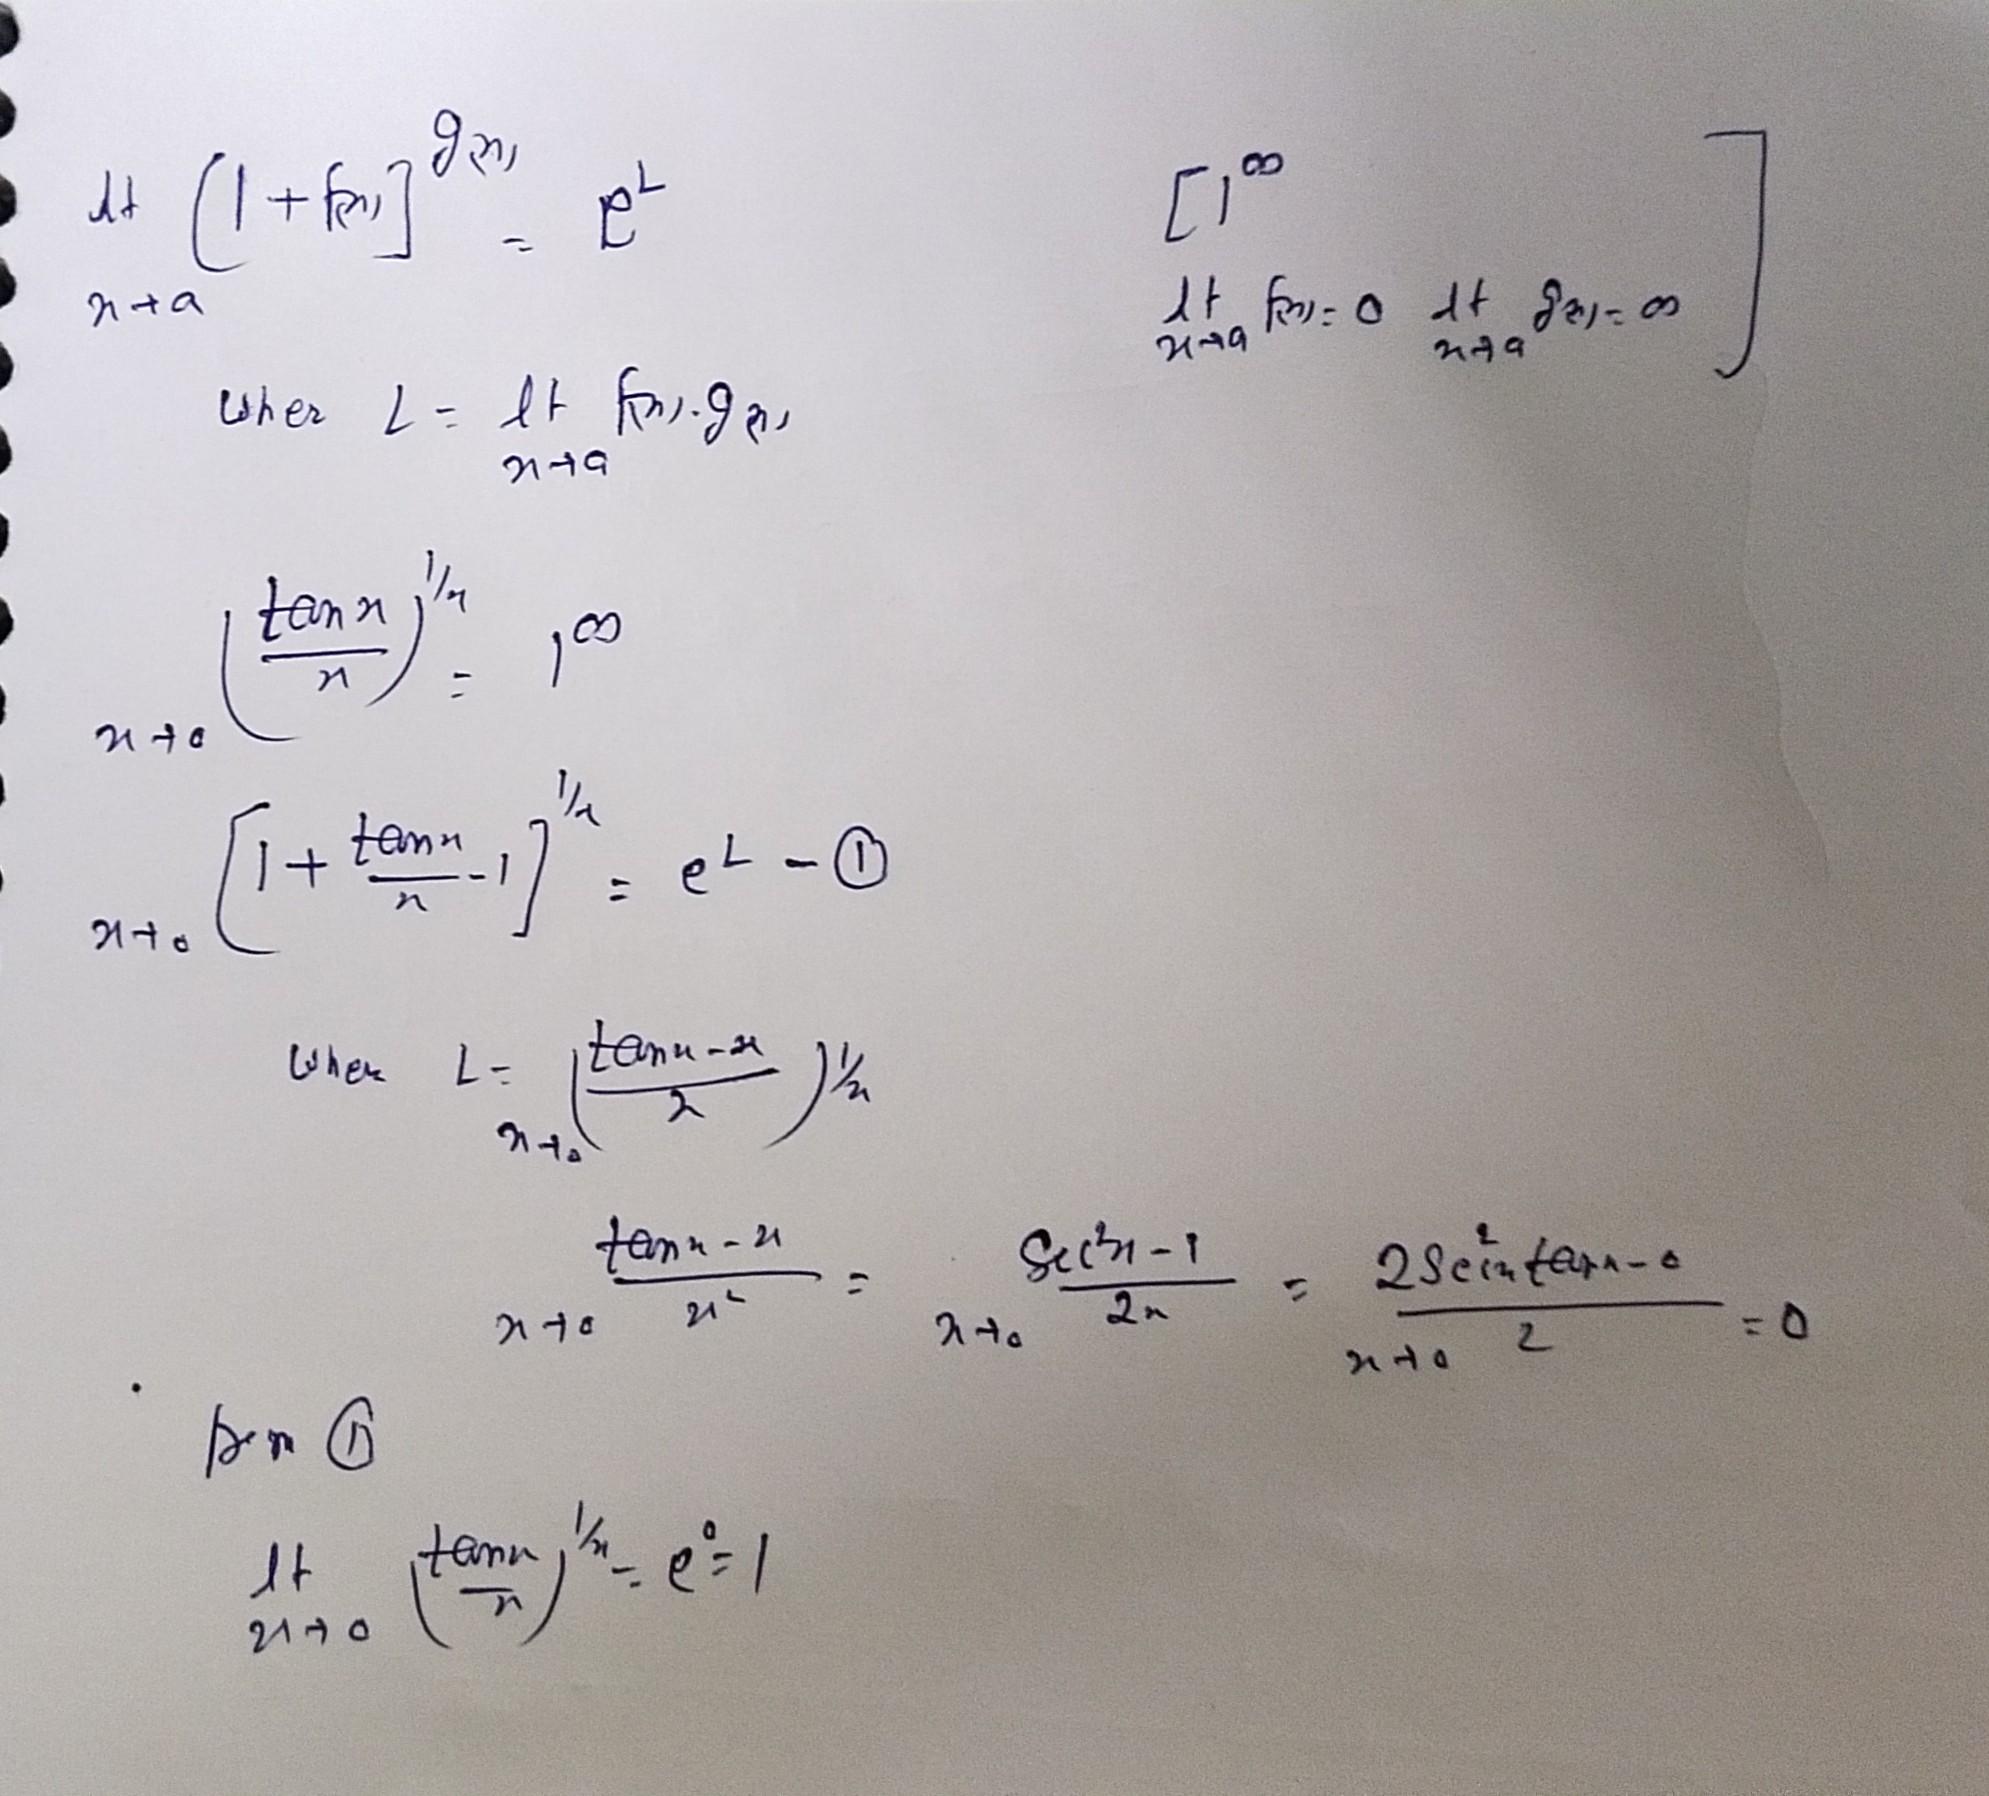 lt [1+f(x)]^g(x) = e^L [1^∞
x→a lt x→a f(x)=0 lt x→a g(x)=∞ ]
wher L = lt x→a f(x).g(x)
x→0 (tanx/x)^1/x = 1^∞
x→0 [1+tanx/x-1]^1/x = e^L - ①
when L= x→0 (tanx-x/x)1/x
x→0 tanx-x/x² = x→0 Sec²x-1/2x = x→0 2Sec²xtanx-0/2 =0
①
lt x→0 (tanx/x)^1/x = e^0=1